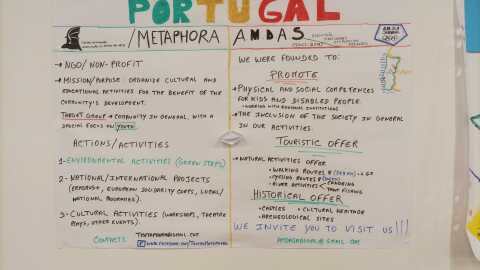 PORTUGAL
/METAPHORA
→ NGO/ NON-PROFIT
→ MISSION/PURPOSE: ORGANISE CULTURAL AND
EDUCATIONAL ACTIVITIES FOR THE BENEFIT OF THE
COMMUNITY'S DEVELOPMENT.
TARGET GROUP → COMMUNITY IN GENERAL, WITH A
SPECIAL FOCUS ON YOUTH.
ACTIONS/ACTIVITIES
1- ENVIRONMENTAL ACTIVITIES (GREEN STEPS)
2- NATIONAL/INTERNATIONAL PROJECTS
(ERASMUS+, EUROPEAN SOLIDARITY CORPS, LOCAL/
NATIONAL PROGRAMS).
3- CULTURAL ACTIVITIES (WORKSHOPS, THEATRE
PLAYS, OTHER EVENTS).
CONTACTS:
AMDAS
WE WERE FOUNDED TO:
PROMOTE
• PHYSICAL AND SOCIAL COMPETENCES
FOR KIDS AND DISABLED PEOPLE.
• WORKING WITH REGIONAL INSTITUTIONS
• THE INCLUSION OF THE SOCIETY IN GENERAL
IN OUR ACTIVITIES.
TOURISTIC OFFER
• NATURAL ACTIVITIES OFFER
• WALKING ROUTES
• CYCLING ROUTES
• RIVER ACTIVITIES CANOEING
FISHING
HISTORICAL OFFER
• CASTLES • CULTURAL HERITAGE
• ARCHEOLOGICAL SITES
WE INVITE YOU TO VISIT US!!!